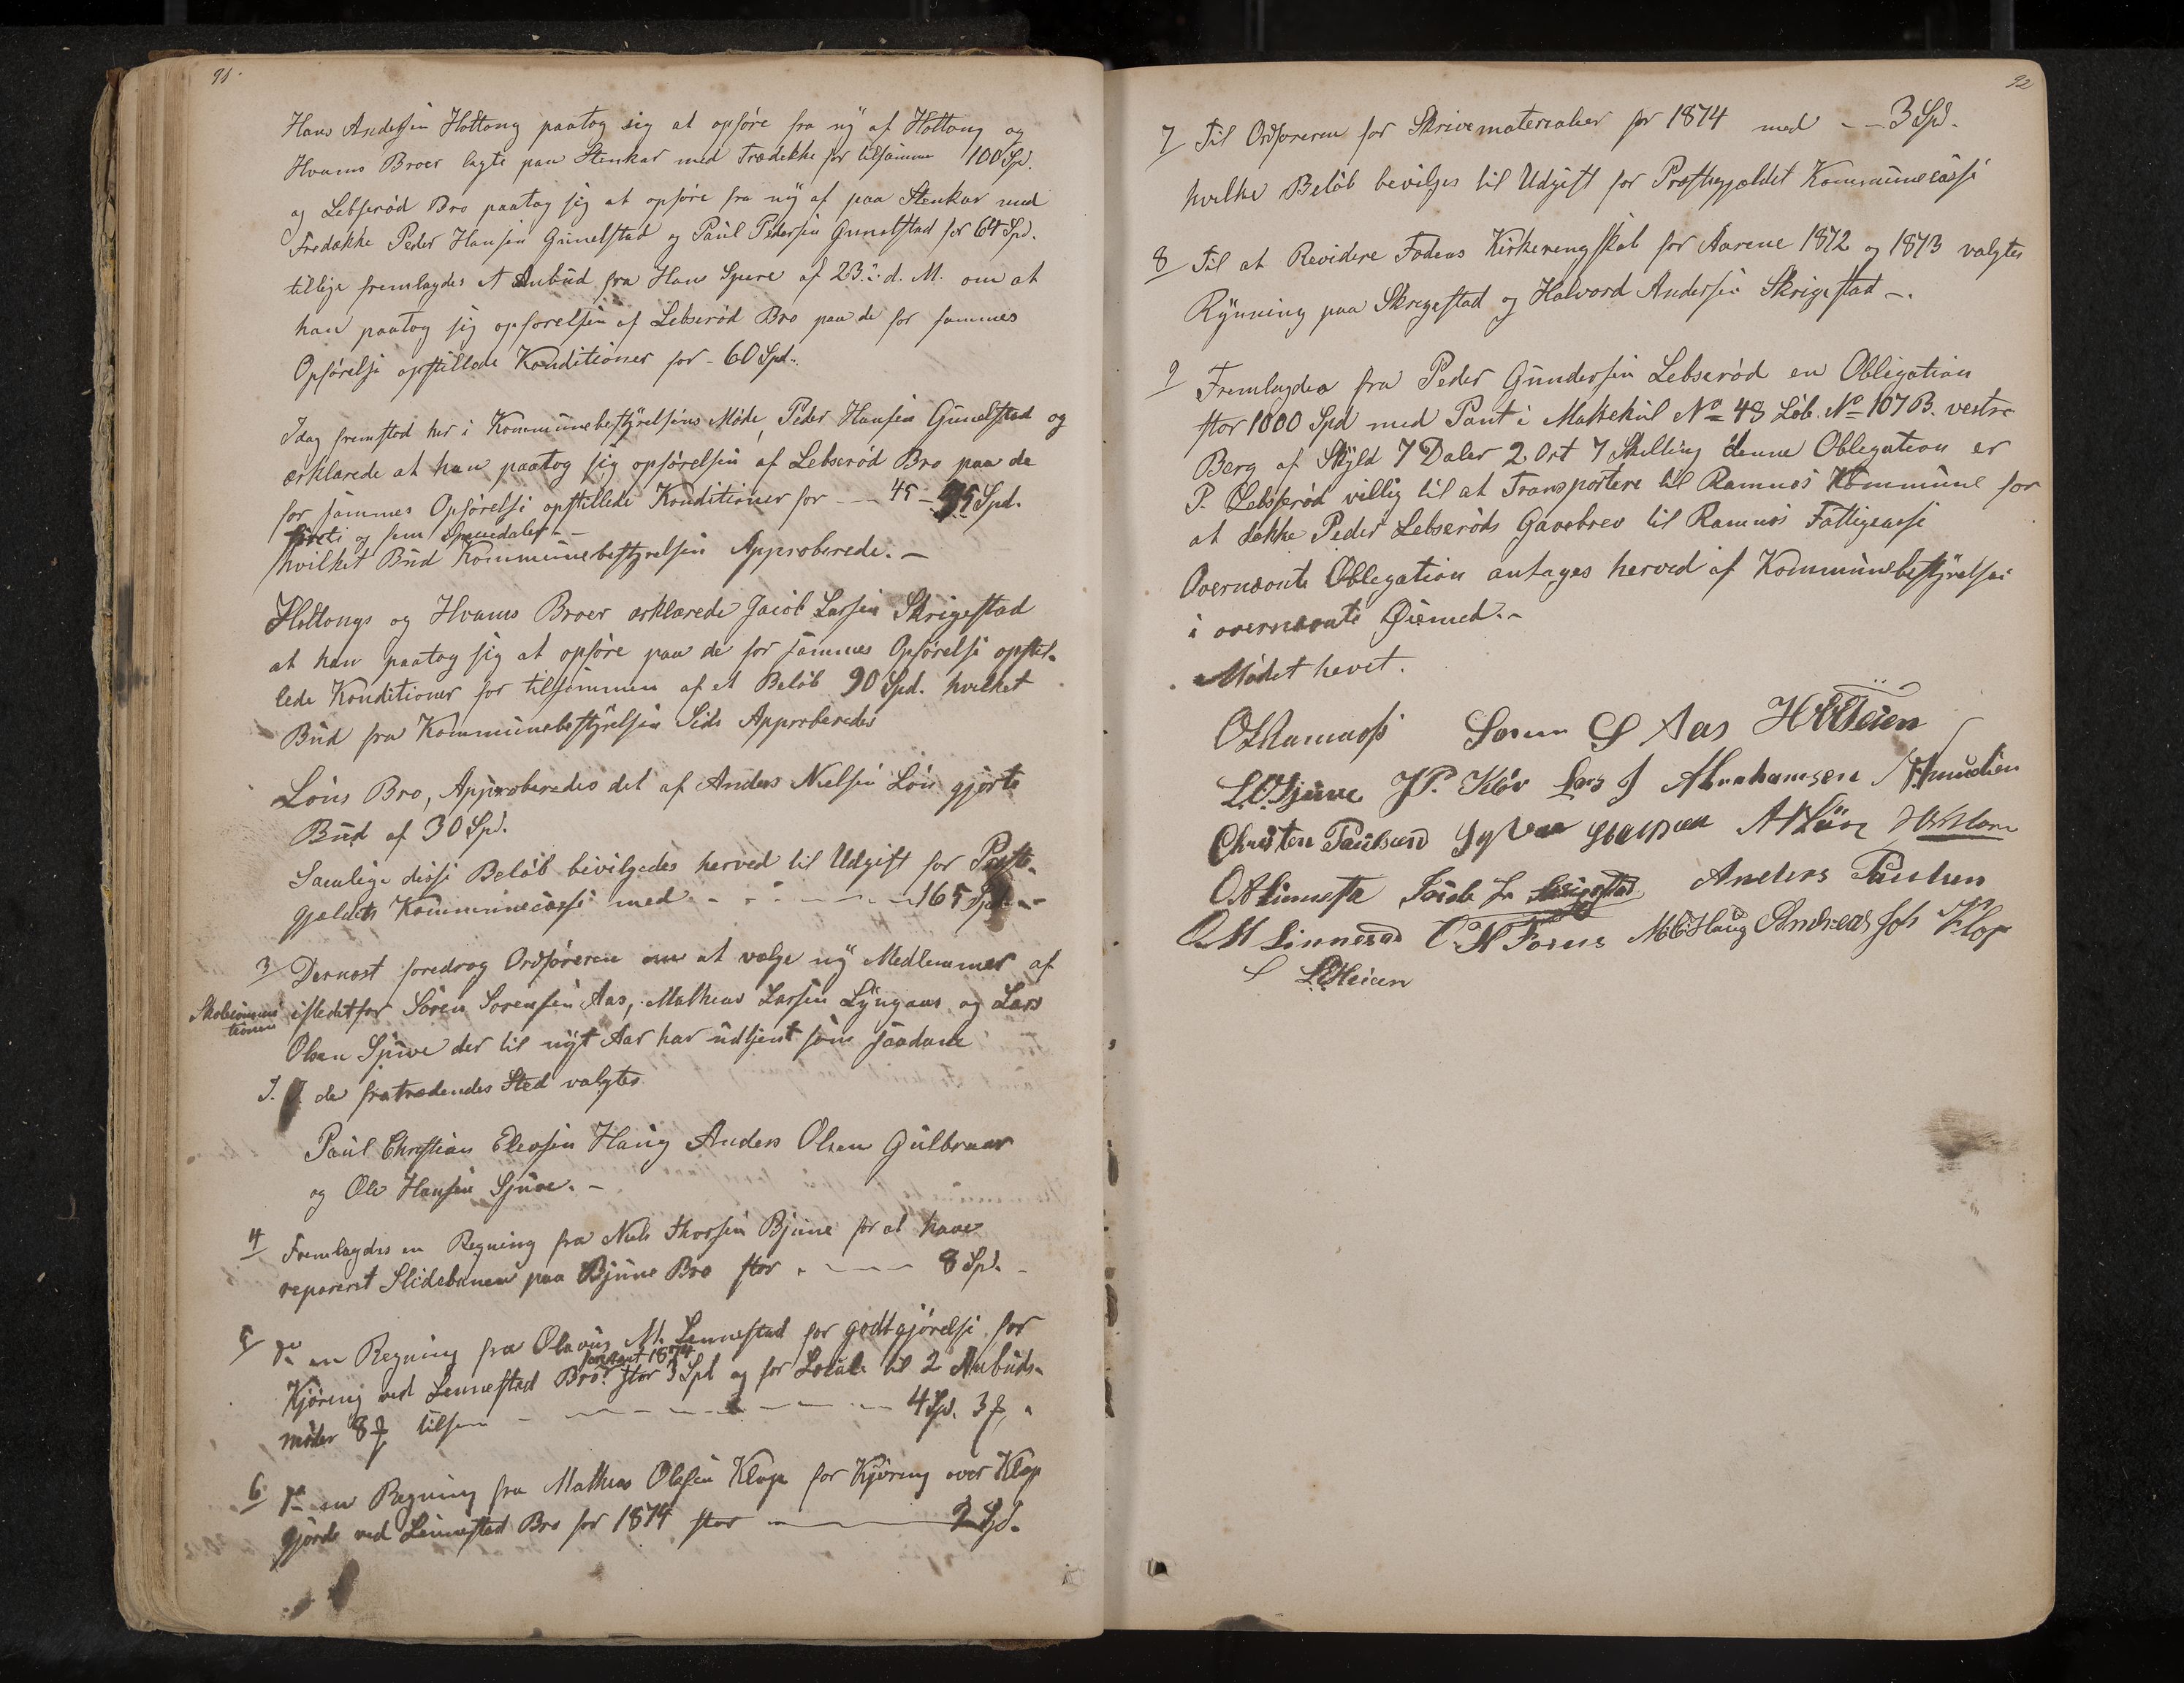 91.
Hans Andersen Holtong paatog sig at opføre fra ny af Holtong og
Hvams Broer lagte paa Stenkar med Trædække for tilsamme 100 Spd.
og Lebserød Bro paatog sig at opføre fra ny af paa Stenkar med
Trædække Peder Hansen Gunelstad og Paul Pedersen Gunelstad for 64 Spd.
tillige fremlagdes et Anbud fra Hans Spere af 23. d. M. om at
han paatog sig opførelsen af Lebserød Bro paa de for sammes
Opførelse opstillede Konditioner for - 60 Spd.
Idag fremstod her i Kommunebestyrelsens Møde, Peder Hansen Gunelstad og
erklærede at han paatog sig opførelsen af Lebserød Bro paa de
for sammes Opførelse opstillede Konditioner for - - 45 - 45 Spd.
firti og fem Speciedaler -
hvilket Bud Kommunebestyrelsen Approberede. -
Holtongs og Hvams Broer erklærede Jacob Larsen Skrigestad
at han paatog sig at opføre paa de for sammes Opførelse opstil-
lede Konditioner for tilsammen af et Beløb 90 Spd. hvilket
Bud fra Kommunebestyrelsen Side Approberedes
Løns Bro, Approberedes det af Anders Nielsen Løn gjorte
Bud af 30 Spd.
Samlige disse Beløb bevilgedes herved til Udgift for Præste-
gjeldets Kommunecasse med - - - - - 165 Spd. -
3/ Dernæst foredrog Ordføreren om at vælge ny Medlemmer af
Skolecommis
tionen istedetfor Søren Sørensen Aas, Mathias Larsen Lyngaas og Lars
Olsen Sjuve der til nyt Aar har udtjent som saadane
I. de fratrædendes Sted valgtes
Paul Christian Elevsen Haug Anders Olsen Gulbraar
og Ole Hansen Sjuve. -
4/ Fremlagdes en Regning fra Niels Thorsen Bjune for at have
repareret Slidebanen paa Bjune Bro stor - - - 8 Spd. -
5/ do en Regning fra Olavus M. Linnestad for godtgjørelse for
Kjøring ved Linnestad Bro stor 3 Spd og for Locale til 2 Anbuds-
møder tilsam - - - - - - 4 Spd. 3
6/ do en Regning fra Mathias Olsen Klop for Kjøring over Klop
gjorde ved Linnestad Bro for 1874 stor - - 2 Spd.
92
7/ Til Ordføreren for Skrivematerialier for 1874 med - - 3 Spd.
hvilke Beløb bevilges til Udgift for Præstegjældet Kommunecasse
8/ Til at Revidere Fodens Kirkerengskab for Aarene 1872 og 1873 valgtes
Rynning paa Skrigestad og Halvord Andersen Skrigestad -.
9/ Fremlagdes fra Peder Gundersen Lebserød en Obligation
stor 1000 Spd med Pant i Mattekul No 48 Løb. No 107 B. vestre
Berg af Skyld 7 Daler 2 Ort 7 Skilling denne Obligation er
P. Lebserød villig til at Transportere til Ramnæs Kommune for
at dække Peder Lebserøds Gavebrev til Ramnæs Fattigcasse
Overnævnte Obligation antages herved af Kommunebestyrelsen
i overnævnte Øiemed. -
Mødet hevet.
Søren S Aas
L. O. Sjuve J P. Kløv Lars J Abrahamsen
Christen Paulsen
O A Linnestad Jacob L Skrigestad Anders Paulsen
O M Linnestad O N Foeus M C Haug Andreas Joh Klop